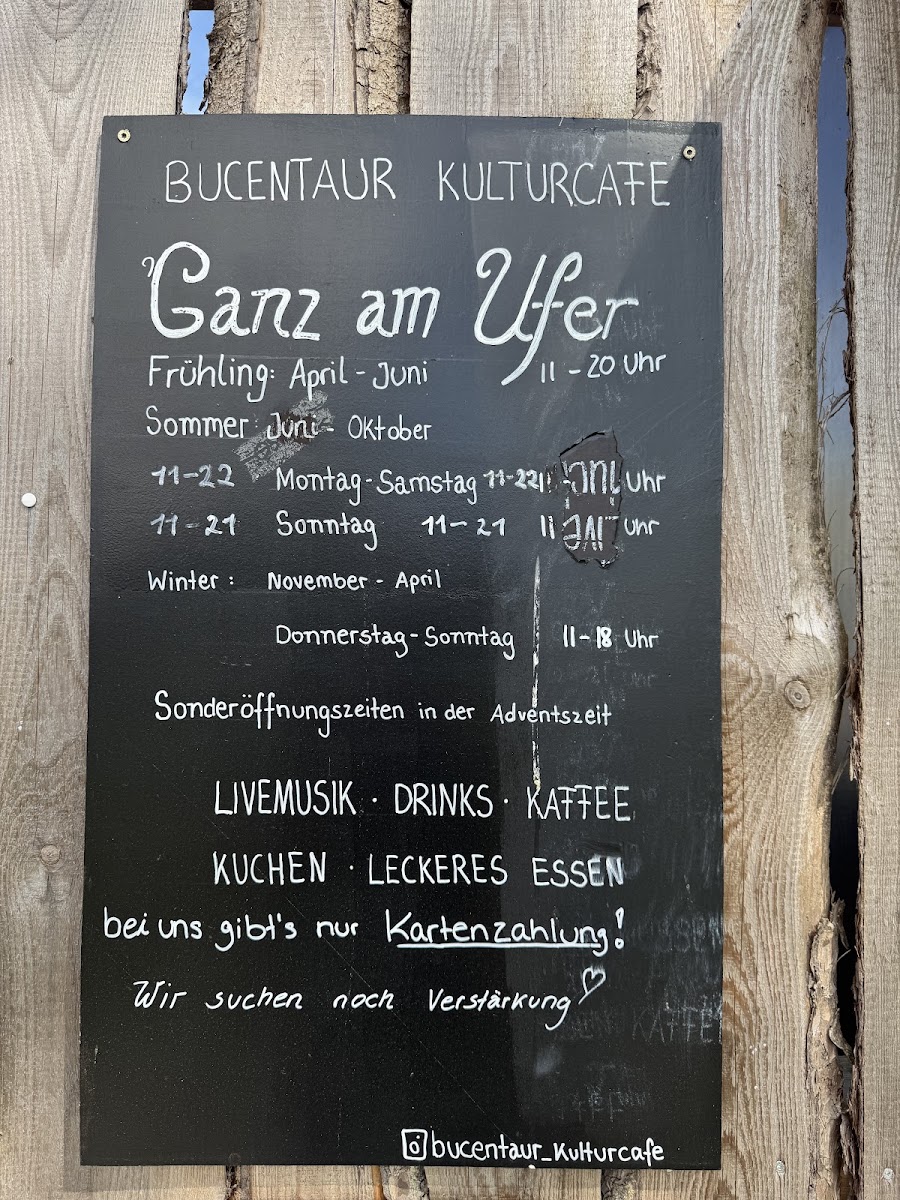 BUCENTAUR KULTURCAFE
Ganz am Ufer
Frühling: April - Juni 11 - 20 Uhr
Sommer Juni - Oktober
11-22 Montag - Samstag 11-22 Uhr
11-21 Sonntag 11-21 Uhr
Winter : November - April
Donnerstag - Sonntag 11-18 Uhr
Sonderöffnungszeiten in der Adventszeit
LIVEMUSIK · DRINKS · KAFFEE
KUCHEN · LECKERES ESSEN
bei uns gibt's nur Kartenzahlung!
Wir suchen noch Verstärkung
bucentaur_kulturcafe